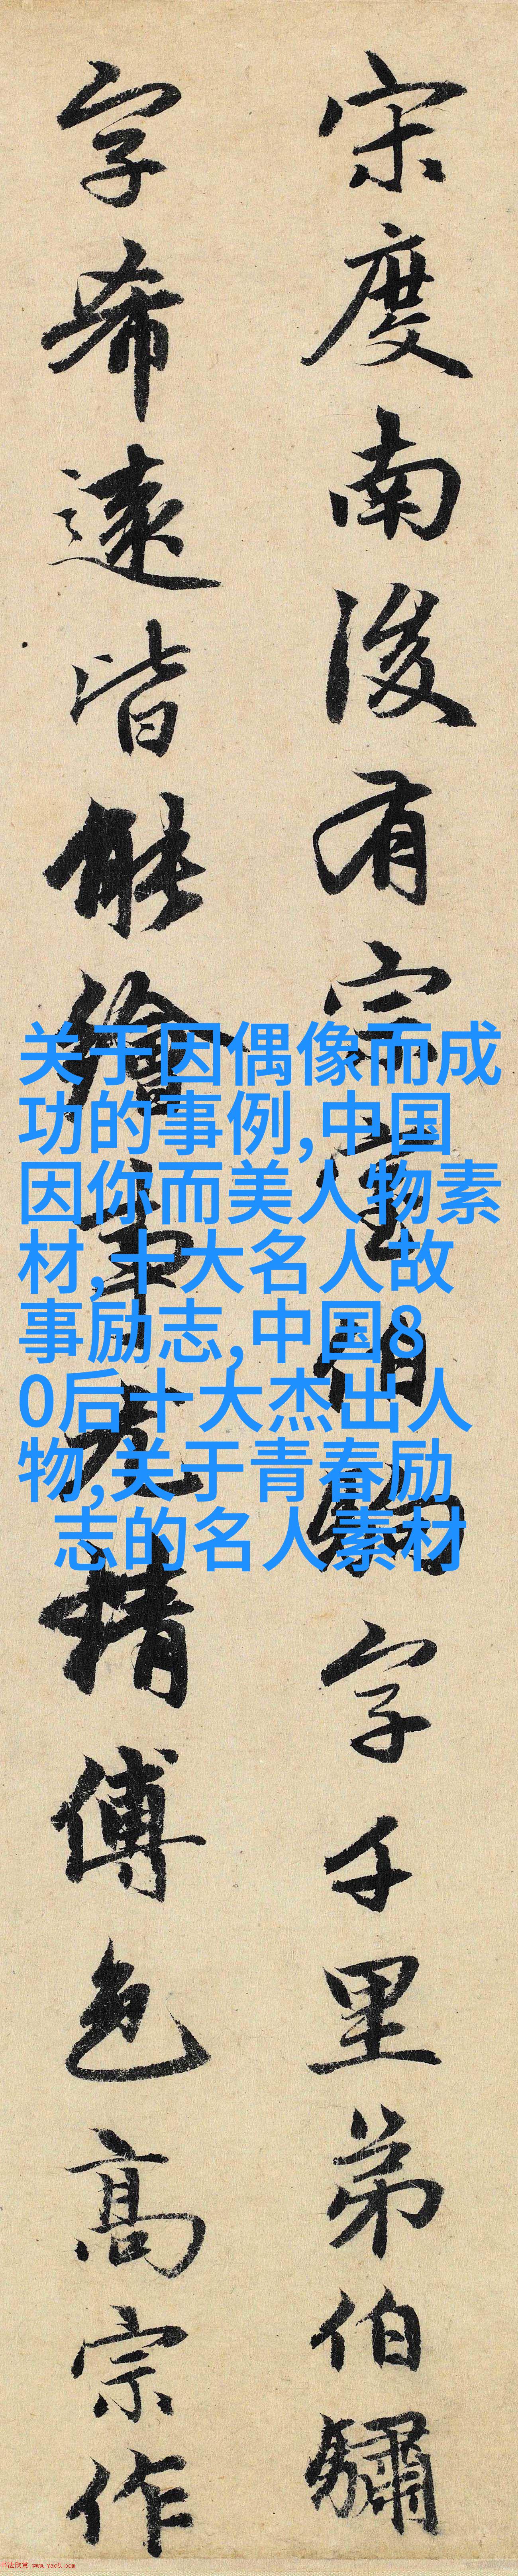 宋度南後有宗室伯駒字千里弟伯驌
字希遠皆能繪事尤精傅色高宗作
关于因偶像而成
功的事例,中国
因你而美人物素
材,十大名人故
事励志,中国8
0后十大杰出人
物,关于青春励
志的名人素材
书法欣赏 www.yac8.com